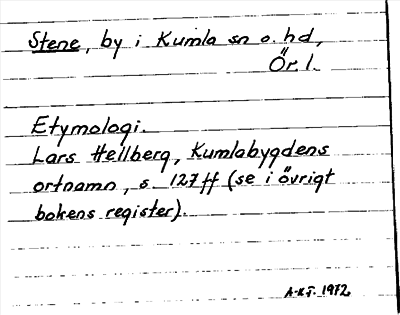 Stene, by i Kumla sn o. hd,
Ör. l.
Etymologi.
Lars Hellberg, Kumlabygdens
ortnamn, s. 127 ff (se i övrigt
bokens register).
A-K J. 1972